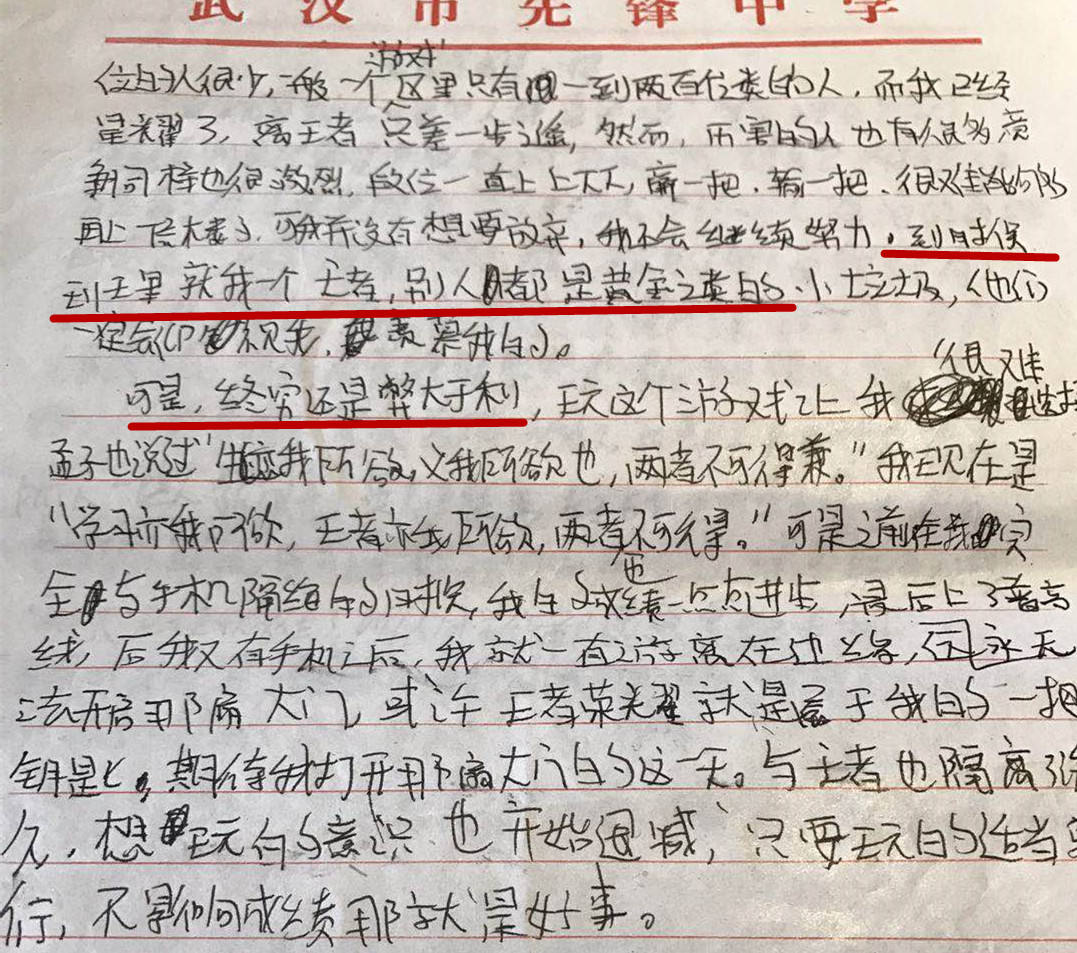 武汉市先锋中学
位的人很少,一般一个游戏区里只有一到两百位类的人,而我已经
星耀了,离王者只差一步之遥,然而,厉害的人也有很多,竞
争同样也很激烈,段位一直上上下下,赢一把,输一把,很难
再上,可我并没有想要放弃,我不会继续努力,到时候
到王里就我一个王者,别人都是黄金之类的小垃圾,他们
一定会仰视我,羡慕我的。
可是,终穷还是弊大于利,玩这个游戏让我很难
孟子也说过"生亦我所欲,义我所欲也,两者不可得兼。"我现在是
"学习亦我所欲,王者亦我所欲,两者不可得。"可是之前在我完
全与手机隔绝的时候,我的成绩也一点点进步,最后上了普高
线,后我又有手机之后,我就一直游离在边缘,永无
法开启那扇大门,或许王者荣耀就是属于我的一把
钥匙,期待我打开那扇大门的这一天。与王者也隔离了许
久,想玩的意识也开始递减,只要玩的适当
行,不影响成绩那就是好事。